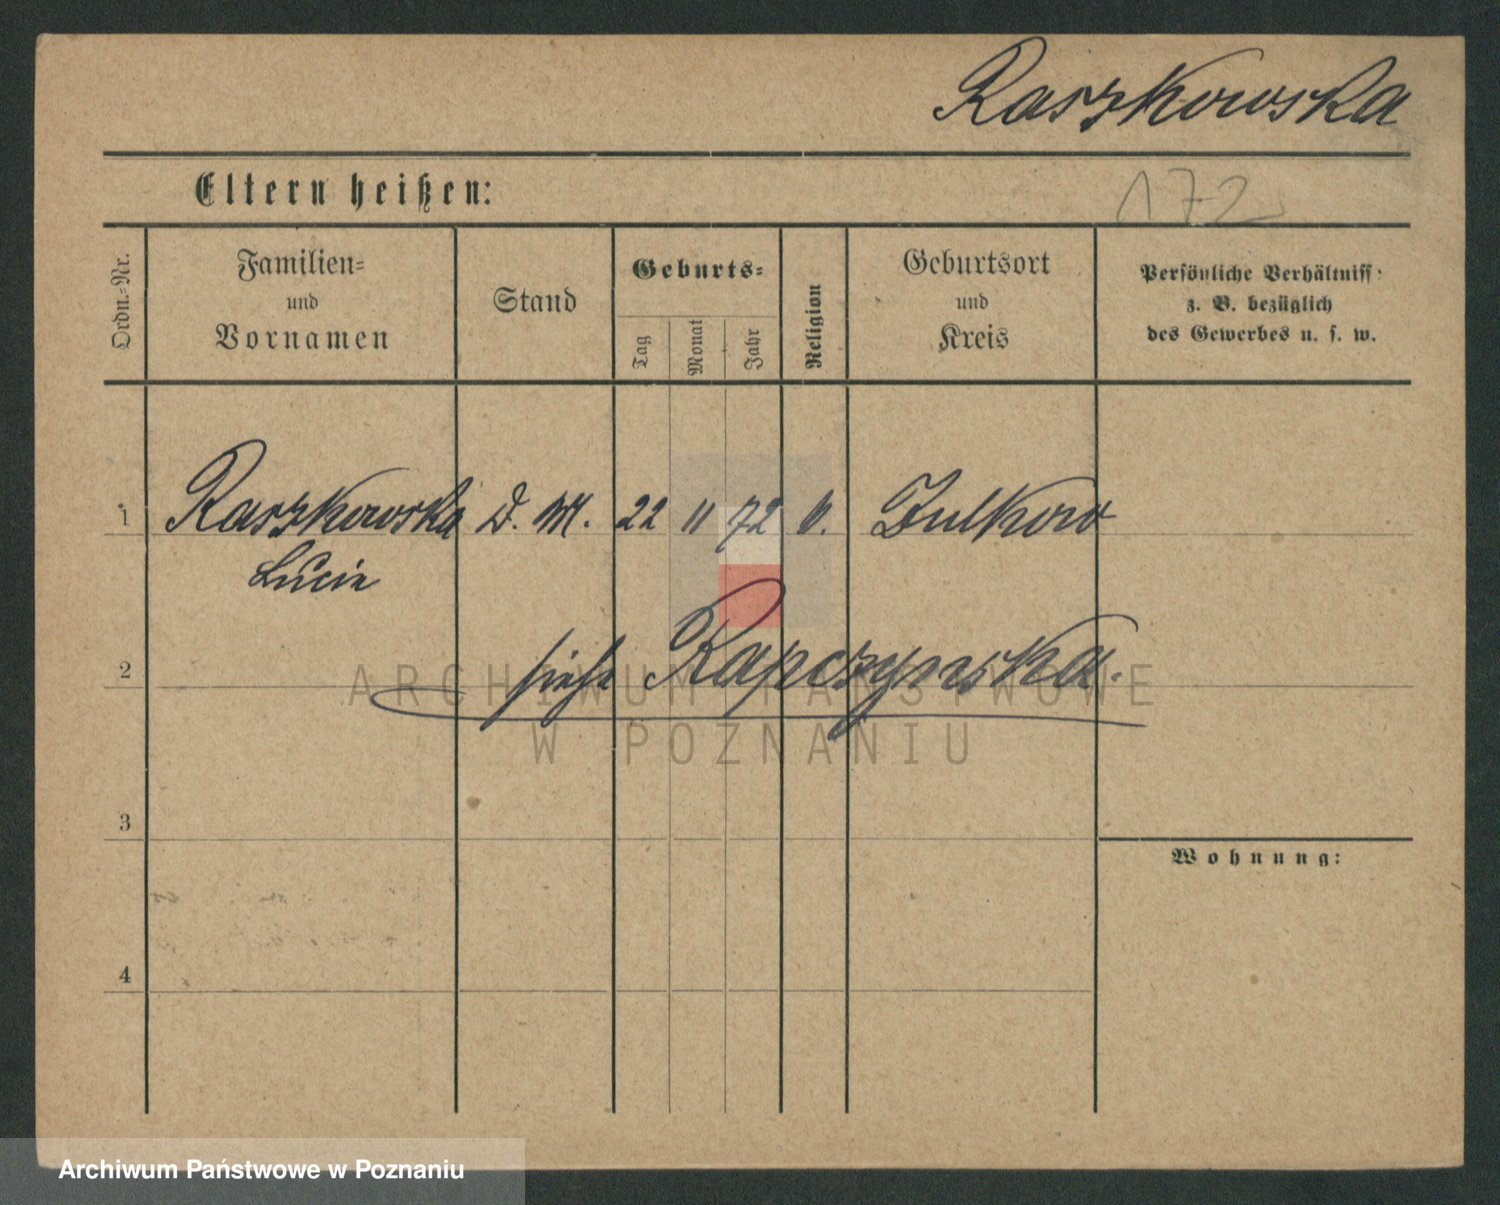 Raszkowska
Eltern heißen:
172
Ordn.-Nr.
Familien-
und
Vornamen
Stand
Geburts-
Tag
Monat
Jahr
Religion
Geburtsort
und
Kreis
Persönliche Verhältniss
z. B. bezüglich
des Gewerbes u. s. w.
1 Raszkowska D. M. 22 11 72 Zulkow
Lucie
2 siehe Rapczynska.
ARCHIWUM PAŃSTWOWE
W POZNANIU
3
Wohnung:
4
Archiwum Państwowe w Poznaniu